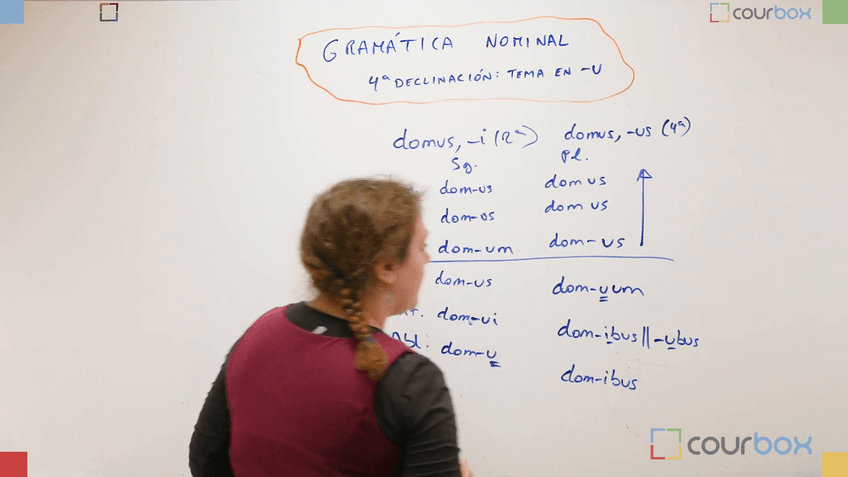 courbox
GRAMÁTICA NOMINAL
4ª DECLINACIÓN: TEMA EN -U
domus, -i (2ª) domus, -us (4ª)
Sg. Pl.
dom-us domus
dom-us domus
dom-um dom-us
dom-us dom-uum
dom-ui dom-ibus || -ubus
Abl: dom-u dom-ibus
courbox